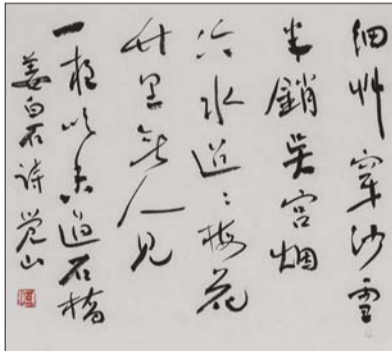 细艸穿沙雪
半銷吴宫烟
冷水迢〻梅花
竹里無人见
一夜吹香过石橋
姜白石诗 觉山